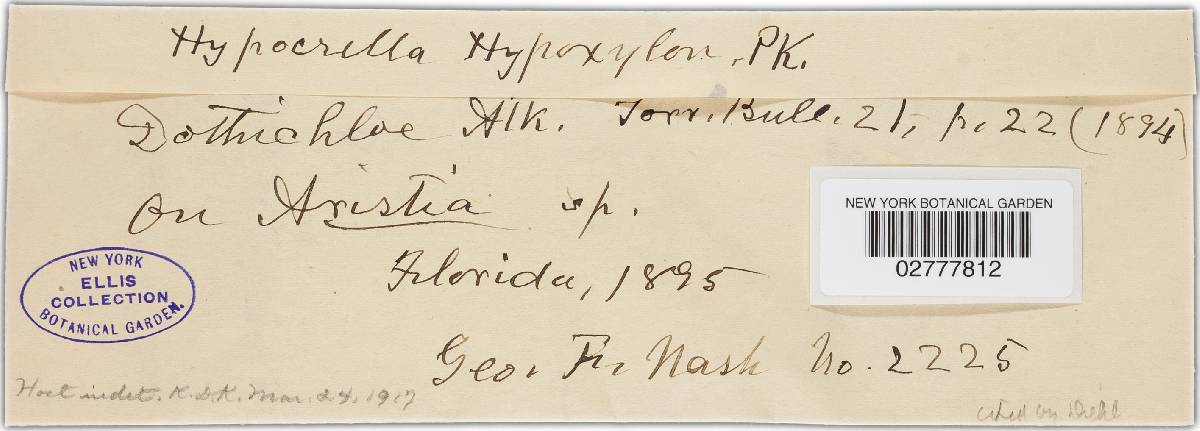 Hypocrella Hypoxylon, PK.
Dothichloe Atk. Torr. Bull. 21, p. 22 (1894)
on Aristia sp.
Florida, 1895
Geo. F. Nash No. 2225
NEW YORK BOTANICAL GARDEN
02777812
NEW YORK
ELLIS
COLLECTION
BOTANICAL GARDEN.
Host indet. K.D.K. Mar. 24. 1917
cited by Diehl